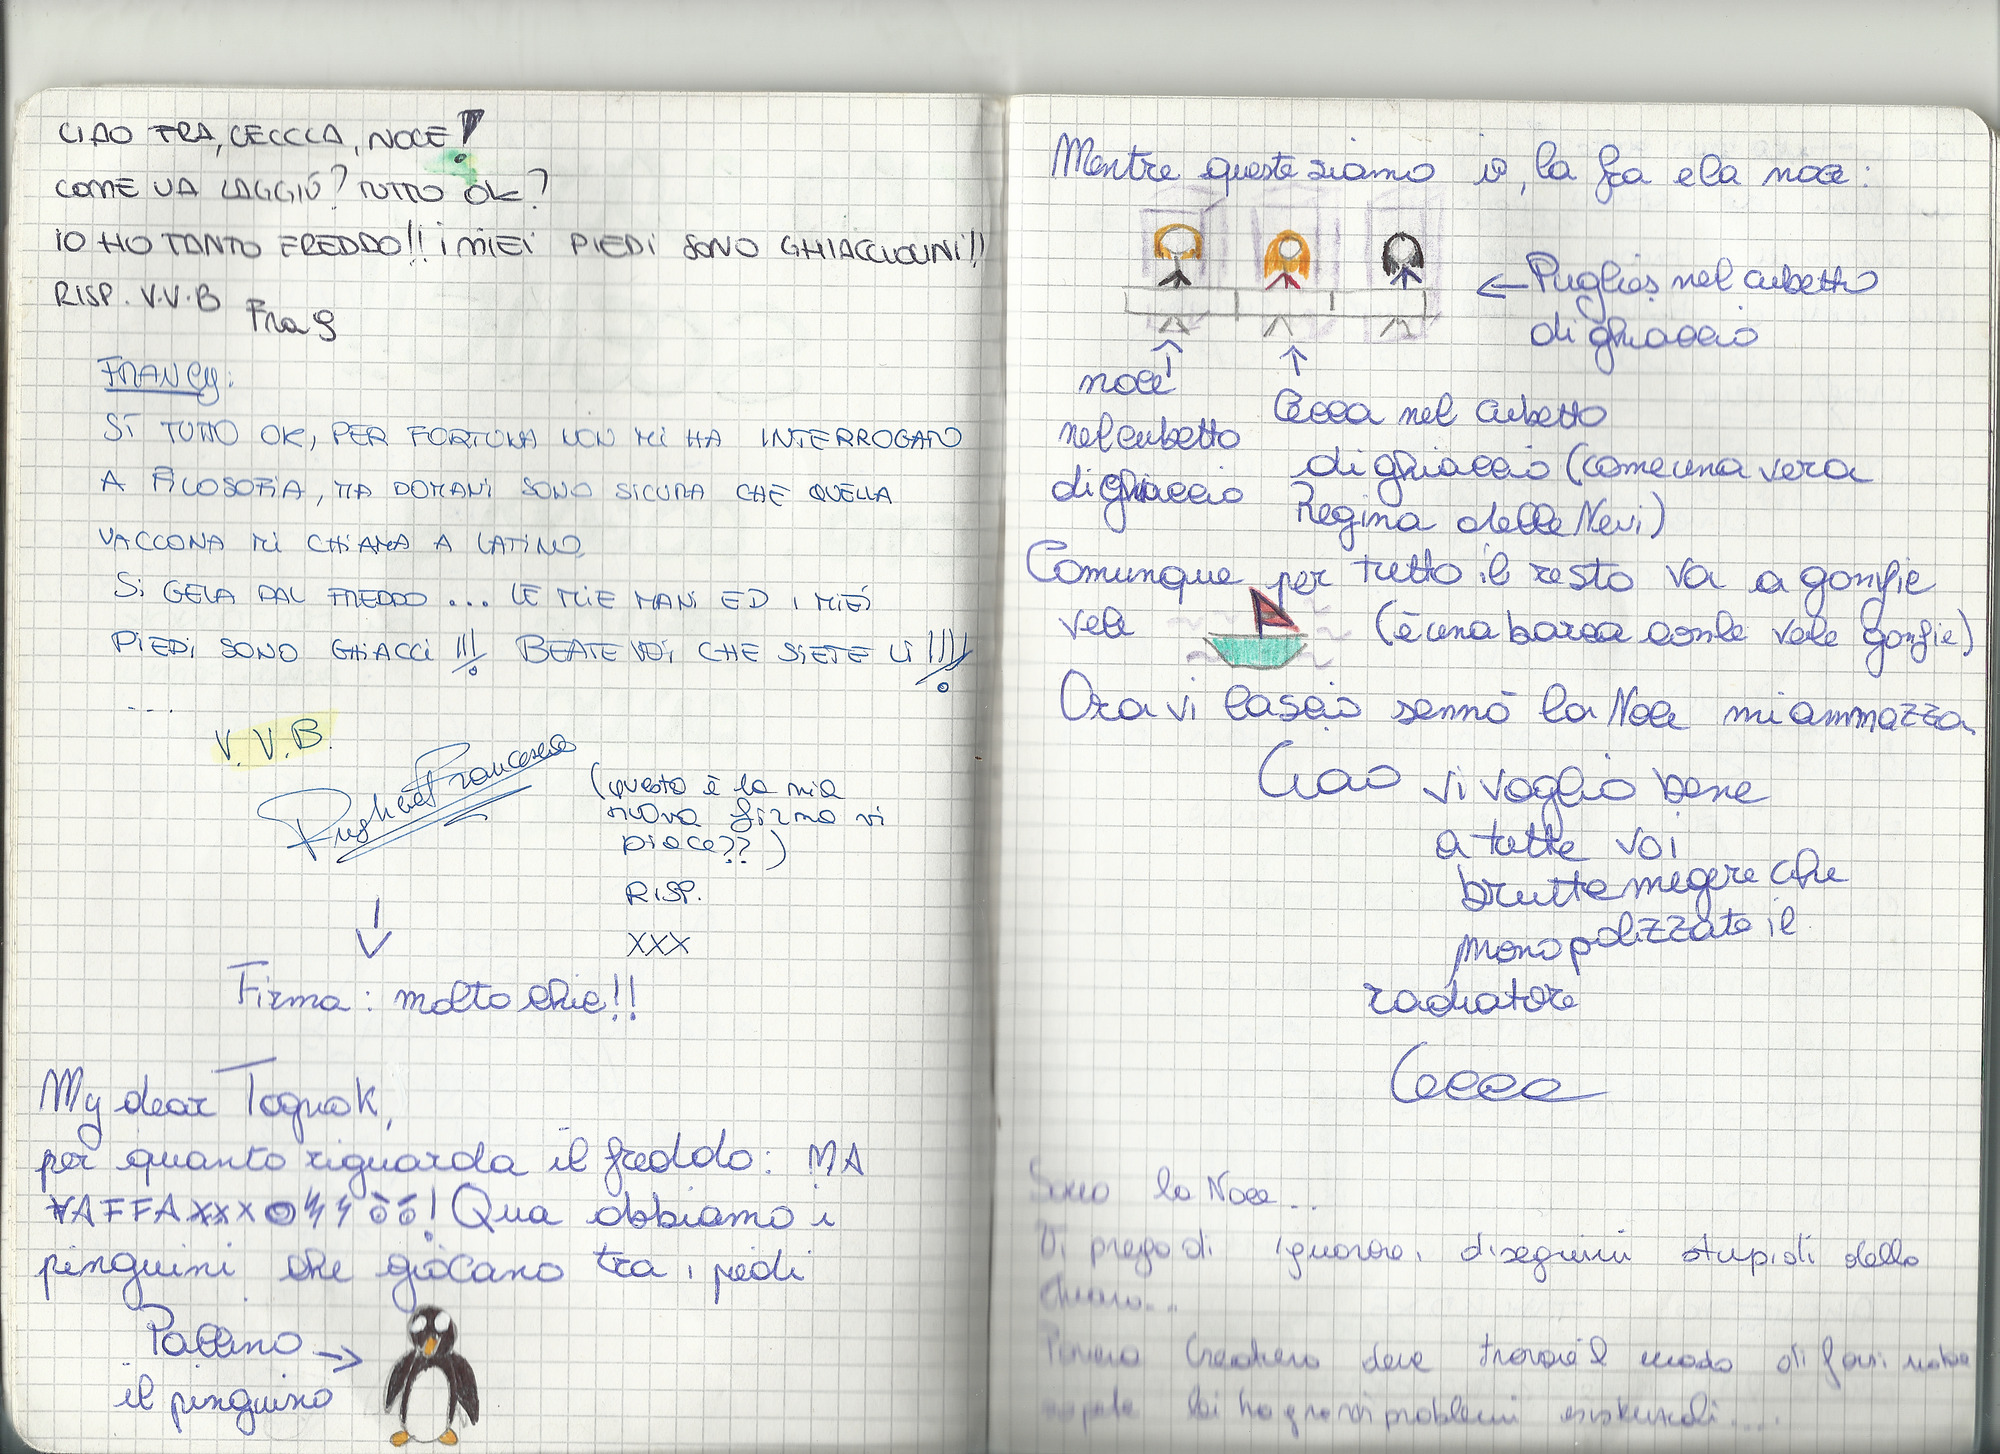 CIAO FRA, CECCCA, NOCE!
COME VA LAGGIÙ? TUTTO OK?
IO HO TANTO FREDDO!! I MIEI PIEDI SONO GHIACCIOLINI!!
RISP. V.V.B Fra G
FRANCY:
SÌ TUTTO OK, PER FORTUNA NON MI HA INTERROGATO
A FILOSOFIA, MA DOMANI SONO SICURA CHE QUELLA
VACCONA MI CHIAMA A LATINO
SI GELA DAL FREDDO... LE MIE MANI ED I MIEI
PIEDI SONO GHIACCI!!! BEATE VOI, CHE SIETE LÌ!!!!
...
V. V. B.
Francesca
(questa è la mia
nuova firma vi
piace??)
RISP.
XXX
Firma: molto chic!!
My dear Tognak,
per quanto riguarda il freddo: MA
VAFFAXXX! Qua abbiamo i
pinguini che giocano tra i piedi
Pallino →
il pinguino
Mentre queste siamo io, la fra e la noce:
← Puglies nel cubetto
di ghiaccio
noce
nel cubetto
di ghiaccio
Cecca nel cubetto
di ghiaccio (come una vera
Regina delle Nevi)
Comunque per tutto il resto va a gonfie
vele (è una barca con le vele gonfie)
Ora vi lascio sennò la Noce mi ammazza.
Ciao vi voglio bene
a tutte voi
brutte megere che
monopolizzate il
radiatore
Cecca
Sono la Noce...
Vi prego di ignorare i disegnini stupidi della
deve trovare il modo di farsi
lei ha grandi problemi esistenziali....